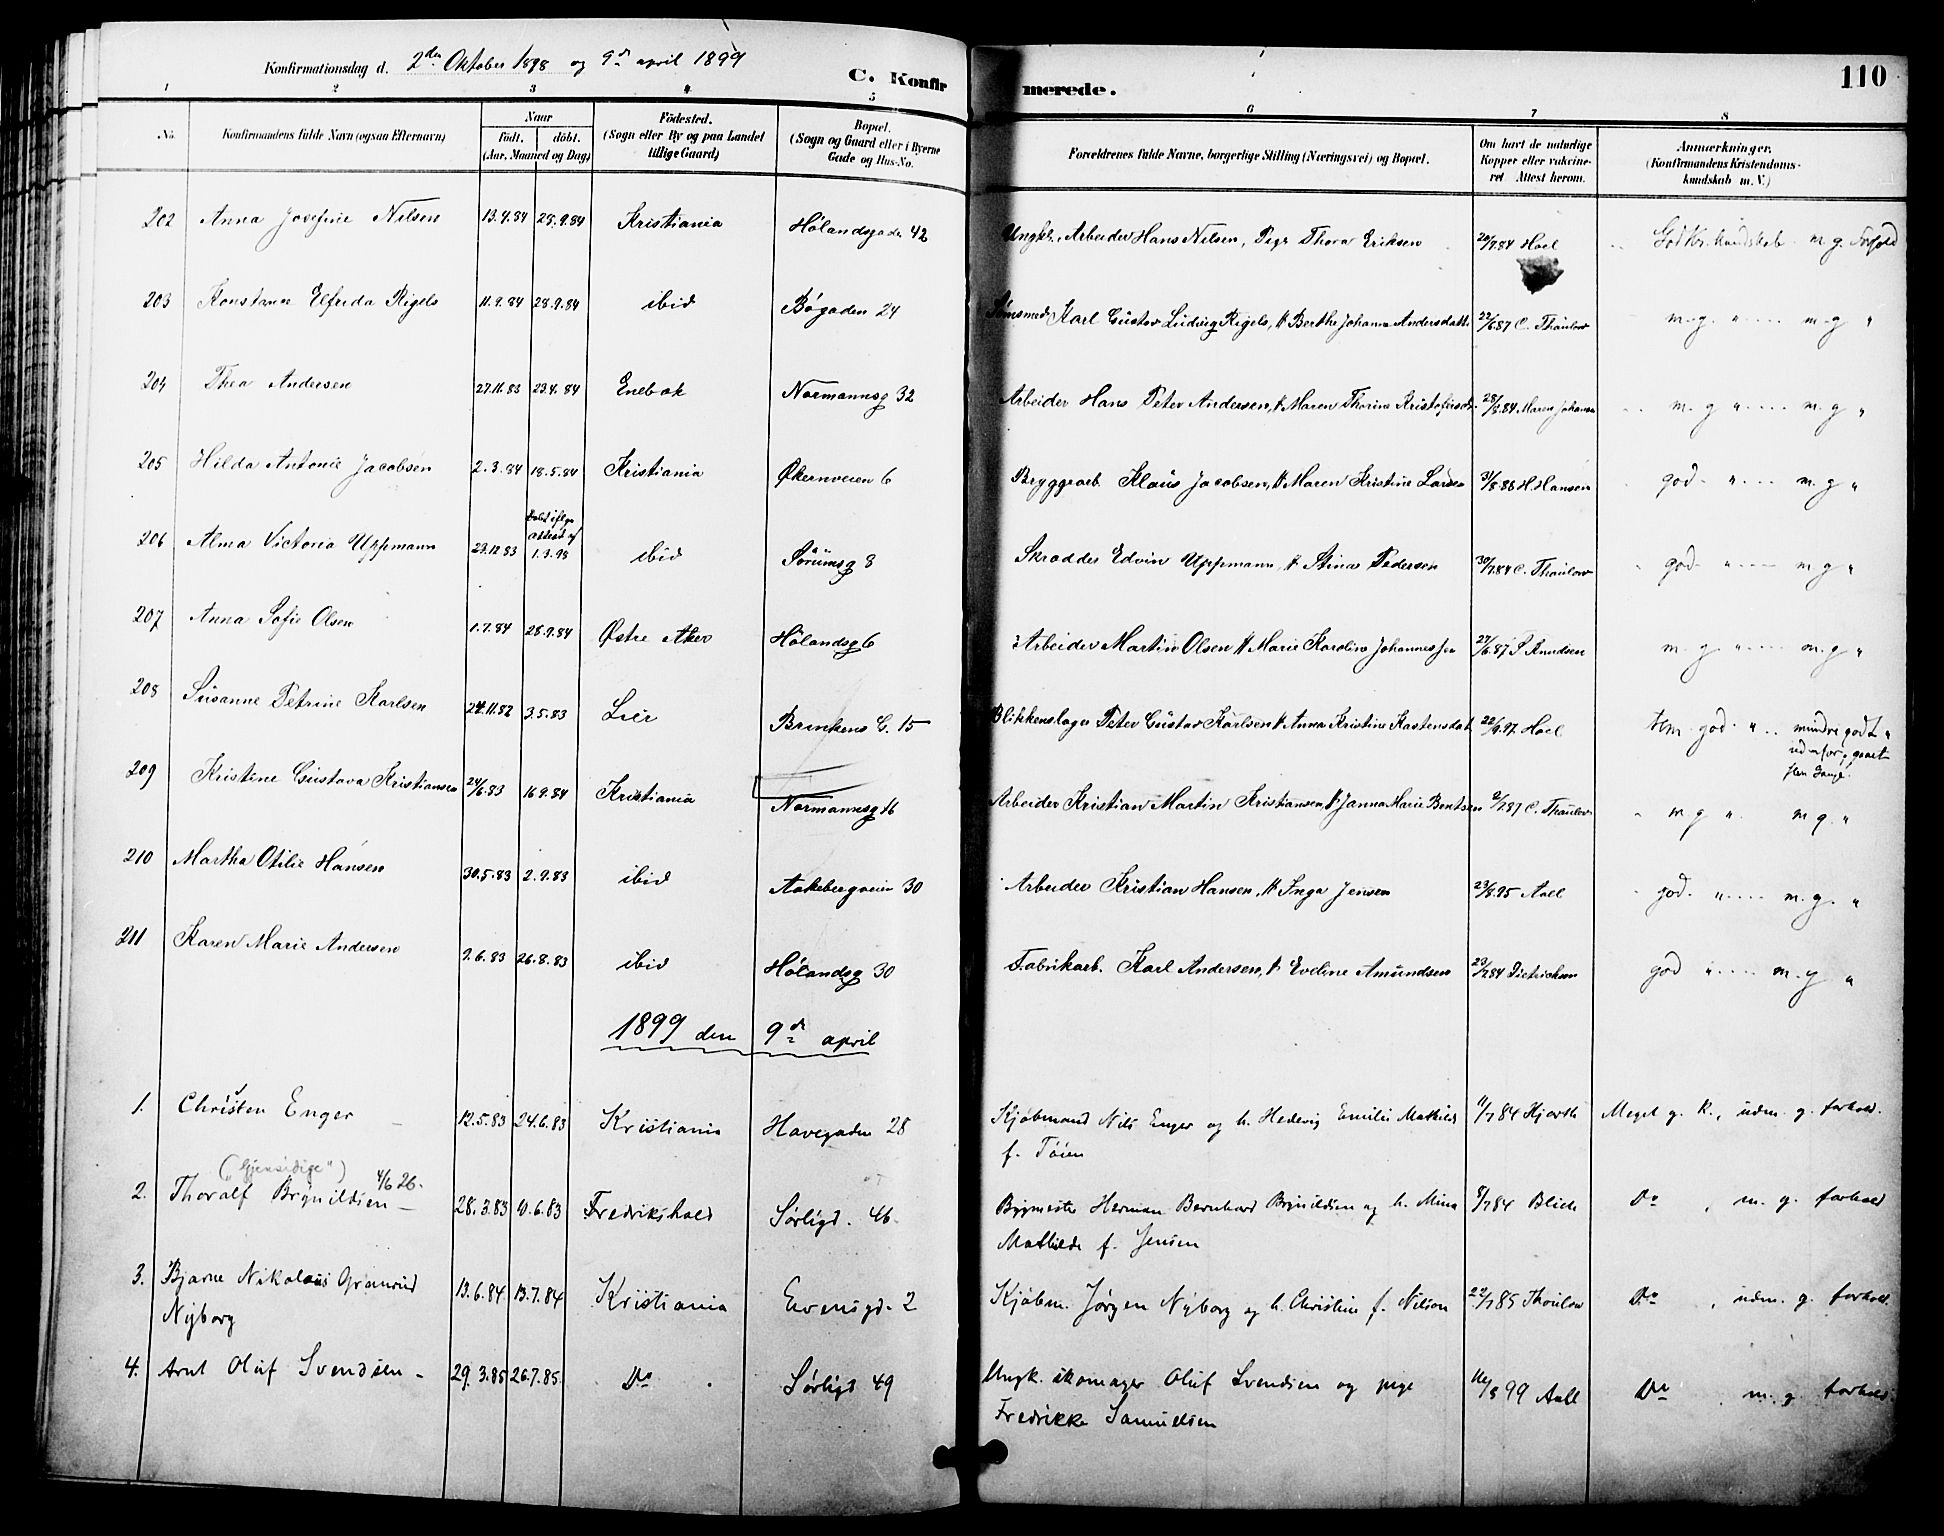 Konfirmationsdag d. 2den Oktober 1898 og 9de april 1899
C. Konfirmerede.
110
1 2 3 4 5 6 7 8
No.
Konfirmandens fulde Navn (ogsaa Efternavn)
Naar
Födt. döbt.
(Aar, Maaned og Dag)
Födested.
(Sogn eller By og paa Landet
tillige Gaard)
Bopæl.
(Sogn og Gaard eller i Byerne
Gade og Hus-No.
Forældrenes fulde Navne, borgerlige Stilling (Næringsvei) og Bopæl.
Om havt de naturlige
Kopper eller vakcine-
ret Attest herom.
Anmærkninger.
(Konfirmandens Kristendoms-
kundskab m. V.)
202 Anna Josefine Nilsen 13.4.84 28.9.84 Kristiania Hølandsgaden 42 Ungk. Arbeider Hans Nilsen, Pige Thora Eriksen 20/7.84 Hoel God Kr. kundskab m. g. Forhold
203 Konstance Elfrida Rigels 11.9.84 28.9.84 ibid Bøgaden 24 Karl Gustav Ludvig Rigels, H Berthe Johanne Andersdatter 22/6.87 C. Thaulow m.g. " m.g "
204 Thea Andersen 27.11.83 23.4.84 Enebak Normannsg 32 Arbeider Hans Peter Andersen, H Maren Thorine Kristofersdt. 28/8.84 Maren Johansen m. g " m. g "
205 Hilda Antonie Jacobsen 2.3.84 18.5.84 Kristiania Økernveien 6 Bryggearb. Klaus Jacobsen, H Maren Kristine Larsen 31/8.86 H. Hansen god " m. g "
206 Alma Victoria Uppmann 23.12.83 Døbt ifølge attest af 1.3.98 ibid Sørumsg 8 Skrædder Edvin Uppmann, H Stina Pedersen 30/7.84 C. Thaulow god " m g "
207 Anna Sofie Olsen 1.7.84 28.9.84 Østre Aker Hølandsg 6 Arbeider Martin Olsen H Marie Karoline Johannessen 27/6.87 P Knudsen m. g. " m. g "
208 Susanne Petrine Karlsen 24.11.82 3.5.83 Lier Brinkens G. 15 Blikkenslager Peter Gustav Karlsen H Anna Kristine Karstensdat 22/9.97 Hoel tem. god " mindre godt "
209 Kristine Gustava Kristiansen 24/6.83 16.9.84 Kristiania Normannsg 16 Arbeider Kristian Martin Kristiansen, H Janna Marie Bentsen 2/7.87 C. Thaulow " m g " m g. "
210 Martha Otilie Hansen 30.5.83 2.9.83 ibid Aakebergveien 30 Arbeider Kristian Hansen, H Inga Jensen 23/8.95 Aall god " m. g. "
211 Karen Marie Andersen 2.6.83 26.8.83 ibid Hølandsg 30 Fabrikarb. Karl Andersen, H Eveline Amundsen 23/7.84 Dietrichson god " m. g "
1899 den 9de april
1. Christen Enger 12.5.83 24.6.83 Kristiania Havegaden 28 Kjøbmand Nils Enger og h. Hedevig Emilie Mathilde 11/7 84 Hjorth Meget g. K., udm. g. forhold.
f. Tøien
("Gjensidige") 4/6 26.
2. Thoralf Brynildsen 28.3.83 10.6.83 Fredrikshald Sørligd. 46. Bygmester Herman Bernhard Brynildsen og h. Mina 8/7 84 Blich Do, m. g. forhold
Mathilde f. Jensen
3. Bjarne Nikolaus Granrud 13.6.84 13.7.84 Kristiania Evensgd. 2 Kjøbm. Jørgen Nyborg og h. Christine f. Nilson 22/7 85 Thaulow Do, udm. g. forhold.
Nyborg
4. Arnt Oluf Svendsen 29.3.85 26.7.85 Do. Sørligd 49 Ungk. skomager Oluf Svendsen og pige 16/8 99 Aall Do m. g. forhold.
Fredrikke Samuelsen